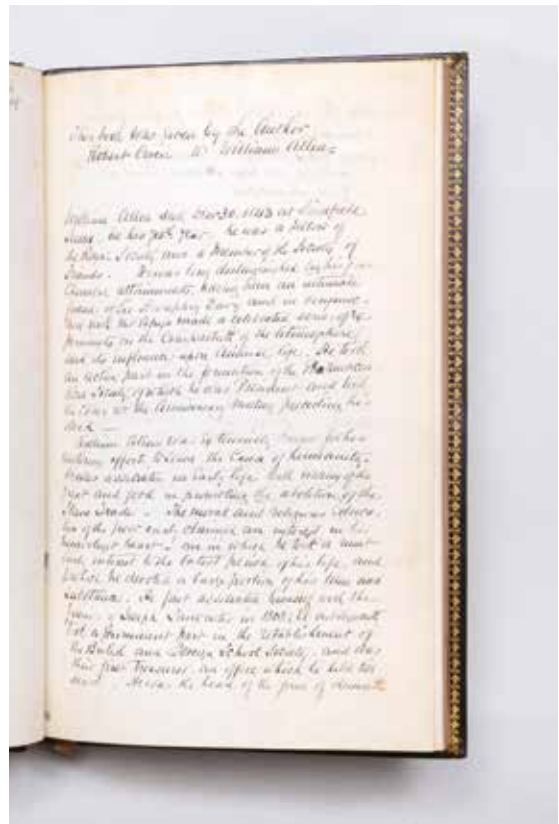 This book was given by the Author
Robert Owen to William Allen =
William Allen died Decr 30. 1843 at Lindfield
in his 74th year. he was a Fellow of
the Royal Society and a Member of the Society of
Friends. He was long distinguished by his
Chemical attainments, having been an intimate
friend of Sir Humphry Davy and in conjunc-
tion with Mr Pepys made a celebrated series of Ex
periments on the Constitution of the Atmosphere
and its influence upon Animal life. He took
an active part in the formation of the Pharmaceu
tical Society of which he was President and took
the Chair at the Anniversary Meeting preceding his
death —
William Allen was extensively known for his
untiring efforts to serve the Cause of humanity.
He was associated in early life with many of the
great and good in promoting the abolition of the
Slave Trade. The moral and religious Educa-
tion of the poor early claimed an interest in his
benevolent heart! one in which he took a
interest to the latest period of his life, and
to which he devoted a large portion of his time and
substance. He first associated himself with the
of Joseph Lancaster in 1808; he subsequently
took a prominent part in the establishment of
the British and Foreign School Society, and was
their first Treasurer, an office which he held till
death. He was the head of the firm of chemists